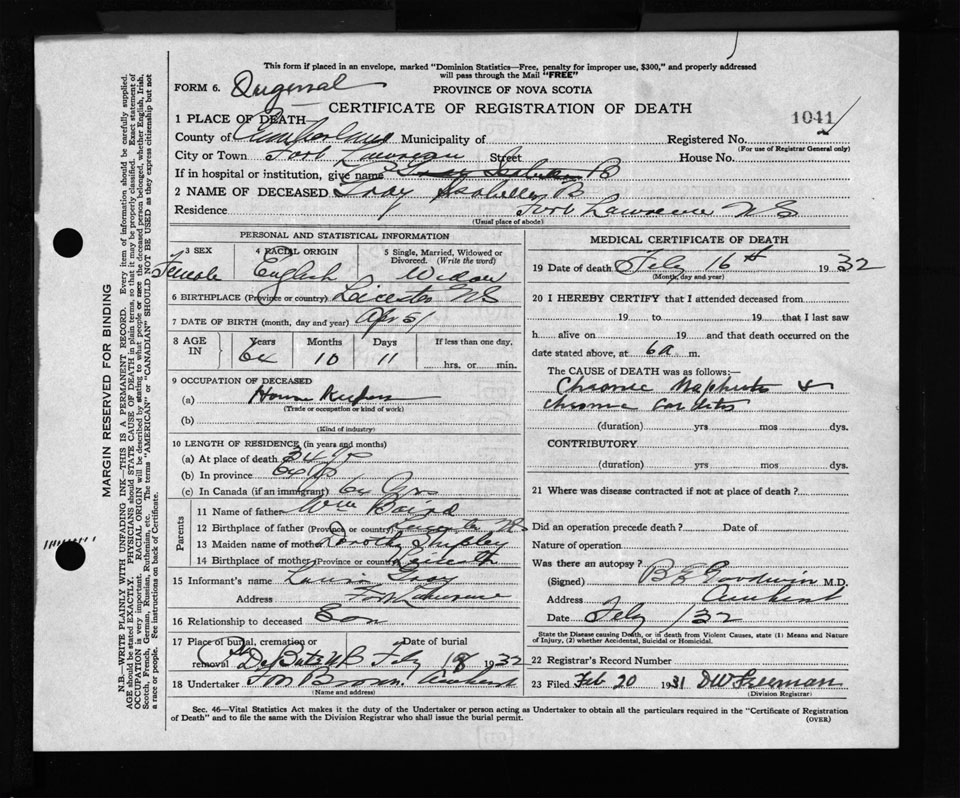 This form if placed in an envelope, marked "Dominion Statistics—Free, penalty for improper use, $300," and properly addressed
will pass through the Mail "FREE"
FORM 6. Original PROVINCE OF NOVA SCOTIA
CERTIFICATE OF REGISTRATION OF DEATH
1041
1 PLACE OF DEATH
County of Cumberland Municipality of Registered No.
(For use of Registrar General only)
City or Town Fort Lawrence Street House No.
If in hospital or institution, give name B
2 NAME OF DECEASED Isabella B
Residence Fort Lawrence NS
(Usual place of abode)
PERSONAL AND STATISTICAL INFORMATION
3 SEX 4 RACIAL ORIGIN 5 Single, Married, Widowed or Divorced. (Write the word)
Female English Widow
6 BIRTHPLACE (Province or country) Leicester NS
7 DATE OF BIRTH (month, day and year) Apr 5/
8 AGE IN Years Months Days If less than one day,
64 10 11 hrs. or min.
9 OCCUPATION OF DECEASED
(a) House Keeper
(Trade or occupation or kind of work)
(b)
(Kind of industry)
10 LENGTH OF RESIDENCE (in years and months)
(a) At place of death 34 yrs
(b) In province 64 yrs
(c) In Canada (if an immigrant) 64 yrs
Parents
11 Name of father Wm Baird
12 Birthplace of father (Province or country) Leicester NS
13 Maiden name of mother Dorothy Shipley
14 Birthplace of mother (Province or country)
15 Informant's name
Address Fort Lawrence
16 Relationship to deceased Son
17 Place of burial, cremation or removal Date of burial
De Bute NB Feby 18 1932
18 Undertaker Brown Amherst
(Name and address)
MEDICAL CERTIFICATE OF DEATH
19 Date of death Feby 16th 1932
(Month, day and year)
20 I HEREBY CERTIFY that I attended deceased from
19 to 19 that I last saw
h alive on 19 and that death occurred on
date stated above, at 6 a m.
The CAUSE of DEATH was as follows:—
Chronic Nephritis &
Chronic Carditis
(duration) yrs mos dys.
CONTRIBUTORY
(duration) yrs. mos dys.
21 Where was disease contracted if not at place of death?
Did an operation precede death? Date of
Nature of operation
Was there an autopsy?
(Signed) B E Goodwin M.D.
Address Amherst
Date Feby /32
State the Disease causing Death, or in death from Violent Causes, state (1) Means and Nature
of Injury, (2) whether Accidental, Suicidal or Homicidal.
22 Registrar's Record Number
23 Filed Feb 20 1931 DW Freeman
(Division Registrar)
Sec. 46—Vital Statistics Act makes it the duty of the Undertaker or person acting as Undertaker to obtain all the particulars required in the "Certificate of Registration
of Death" and to file the same with the Division Registrar who shall issue the burial permit. (OVER)
MARGIN RESERVED FOR BINDING
N.B.—WRITE PLAINLY WITH UNFADING INK—THIS IS A PERMANENT RECORD. Every item of information should be carefully supplied.
AGE should be stated EXACTLY. PHYSICIANS should STATE CAUSE OF DEATH in plain terms, so that it may be properly classified. Exact statement of
OCCUPATION is very important. RACIAL ORIGIN will be described by stating to what people or race the deceased person belonged, whether English, Irish,
Scotch, French, German, Russian, Ruthenian, etc. The terms "AMERICAN" or "CANADIAN" SHOULD NOT BE USED as they express citizenship but not
a race or people. See instructions on back of Certificate.